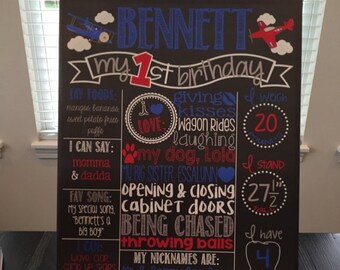 BENNETT
my 1st birthday
FAV FOODS:
mangos, bananas
sweet potato fries
puffs
I CAN SAY:
momma
& dadda
FAV SONG:
MY SPECIAL SONG,
"BENNETT'S A
BIG BOY"
I
LOVE:
giving
kisses
WAGON RIDES
laughing
my dog, Lola
MY BIG SISTER,
OPENING & CLOSING
CABINET DOORS
BEING CHASED
throwing balls
MY NICKNAMES ARE:
I WEIGH
20
I STAND
27 1/2
I HAVE
4